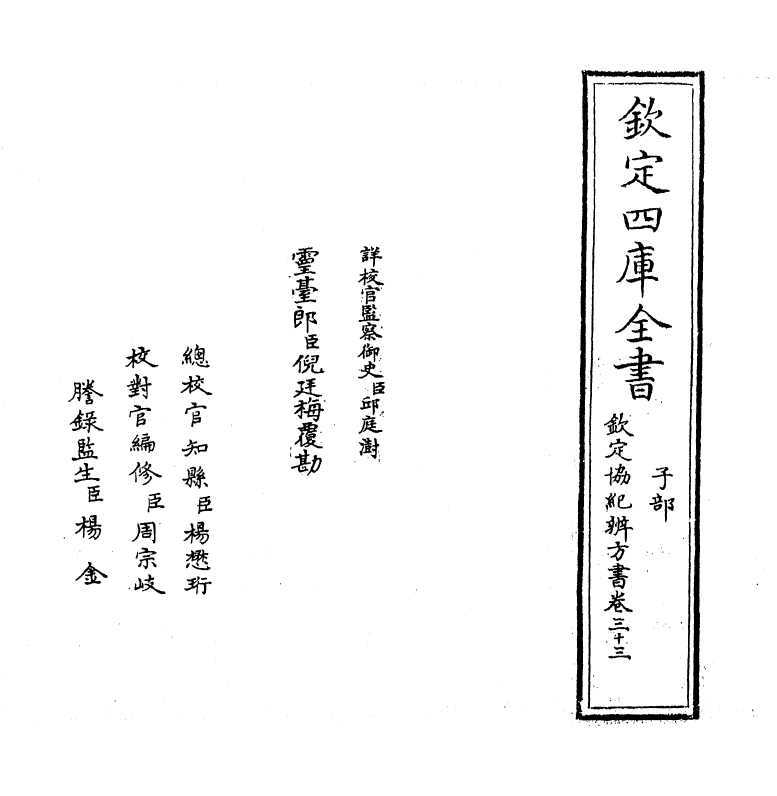 欽定四庫全書
子部
欽定協紀辨方書卷三十三
詳校官監察御史臣邱庭澍
靈臺郎臣倪廷梅覆勘
總校官知縣臣楊懋珩
校對官編修臣周宗岐
謄錄監生臣楊金